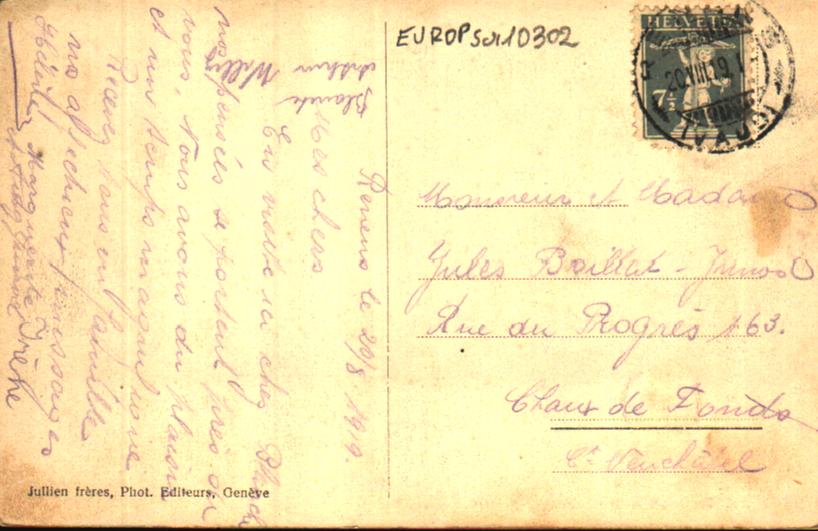 EUROPsui10302
HELVETIA
7½
20.VIII.19.1
(VAUD)
Renens le 20/8 1919.
Mes chers
En visite ici chez
nos pensées se portent près de
vous. Nous avons du plaisir
et un temps magnifique
Recevez tous en famille
nos affectueux messages
Marguerite Irène
Blanche
Arthur Willy
Monsieur et Madame
Jules Boillat-Junod
Rue du Progrès 163.
Chaux de Fonds
Ct. Neuchâtel
Jullien frères, Phot. Editeurs, Genève